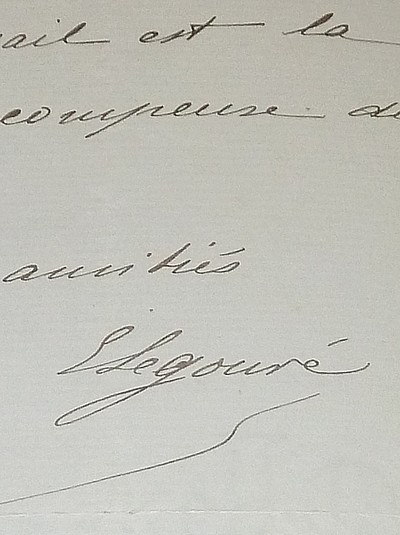 ail est la
compense du
amitiés
E Legouvé